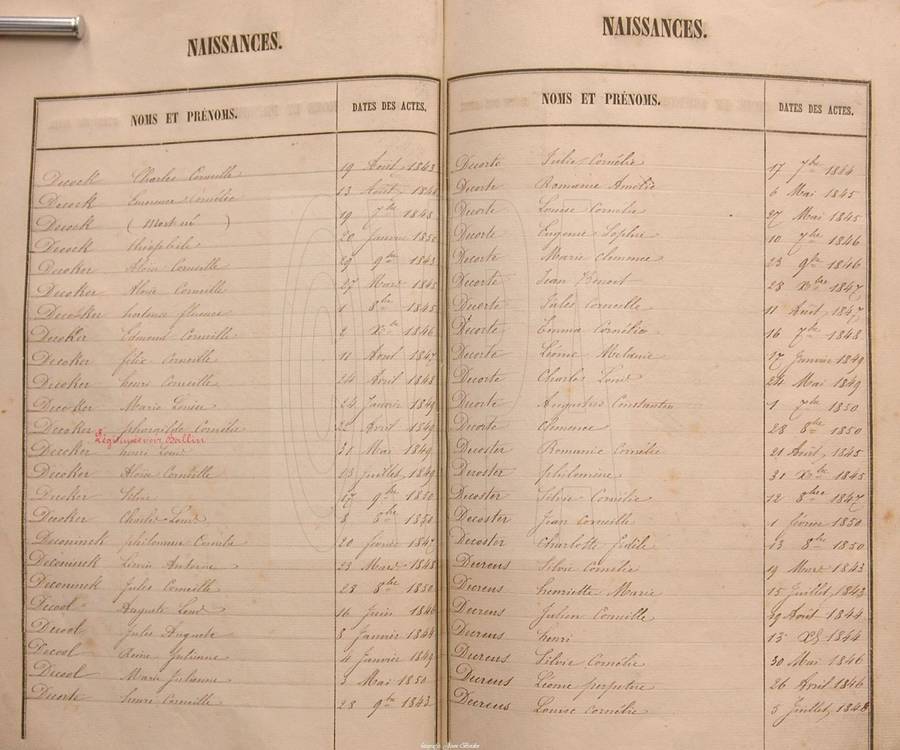 NAISSANCES.
NOMS ET PRÉNOMS. DATES DES ACTES.
Decock Charles Corneille 19 Août 1843
Decock Emerence Cornélie 13 Août
Decock (Mort né) 19 7bre 1845
Decock théophile 20 Janvier 1850
Decoker Aloïse Corneille 29 9bre 1843
Decoker Aloïse Corneille 27 Mars 1845
Decocker hortence florence 1 8bre 1845
Decoker Edmond Corneille 2 Xbre 1846
Decoker félix Corneille 11 Août 1847
Decoker henri Corneille 24 Avril 1848
Decocker Marie Louise 24 Janvier 1849
Decoker Cornélie Avril 1849
Légitimé voir Ballin
Decoker henri Louis 31 Mai 1849
Decoker Aloïse Corneille 13 Juillet 1849
Decoker 17 9bre 1850
Decoker Charles Louis 8 1850
Deconinck philomène Cornélie 20 février 1847
Deconinck Antoine 23 Mars 1848
Deconinck Jules Corneille 28 8bre 1850
Decool Auguste Louis 16 Juin 1846
Decool Jules Auguste 8 Janvier 1848
Decool Reine Julienne 4 Janvier 1849
Decool Marie Julienne 3 Mai 1850
Decorte henri Corneille 28 9bre 1843
NAISSANCES.
NOMS ET PRÉNOMS. DATES DES ACTES.
Decorte Julie Cornélie 17 7bre 1844
Decorte Romanie Amélie 6 Mai 1845
Decorte Louise Cornélie 27 Mai 1845
Decorte Eugenie Sophie 10 7bre 1846
Decorte Marie Clemence 23 9bre 1846
Decorte Jean Benoit 28 Xbre 1847
Decorte Jules Corneille 11 Août 1847
Decorte Emma Cornélie 16 7bre 1848
Decorte Léonie Melanie 17 Janvier 1849
Decorte Charles Louis 24 Mai 1849
Decorte Augustus Constantin 1 7bre 1850
Decorte Clemence 28 8bre 1850
Decoster Romanie Cornélie 21 Août 1845
Decoster philomène 31 Xbre 1845
Decoster Silvie Cornélie 12 8bre 1847
Decoster Jean Corneille 1 février 1850
Decoster Charlotte fidèle 13 8bre 1850
Decreus Silvie Cornélie 19 Mars 1843
Decreus henriette Marie 15 Juillet 1843
Decreus Julien Corneille 29 Août 1844
Decreus henri 13 1844
Decreus Silvie Cornélie 30 Mai 1846
Decreus Léonie perpetue 26 Avril 1846
Decreus Louise Cornélie 5 Juillet 1848